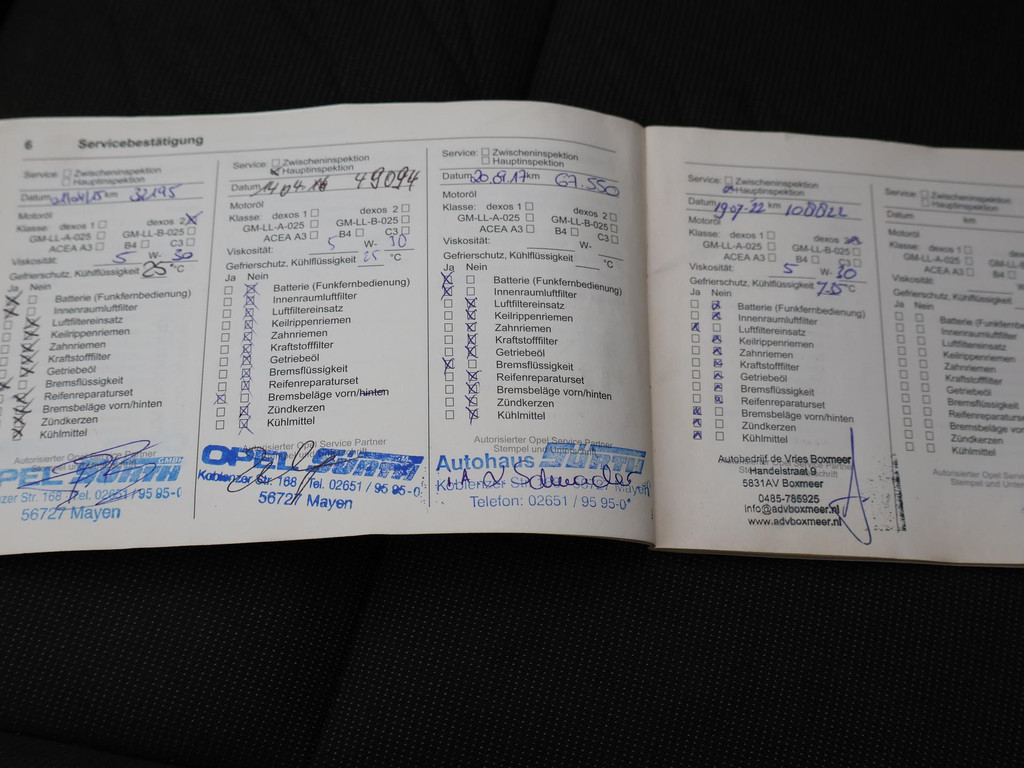 6 Servicebestätigung
Service: Zwischeninspektion
Hauptinspektion
Datum km 32195
Motoröl
Klasse: dexos 1 dexos 2
GM-LL-A-025 GM-LL-B-025
ACEA A3 B4 C3
Viskosität: 5 W- 30
Gefrierschutz, Kühlflüssigkeit 25 °C
Ja Nein
Batterie (Funkfernbedienung)
Innenraumluftfilter
Luftfiltereinsatz
Keilrippenriemen
Zahnriemen
Kraftstofffilter
Getriebeöl
Bremsflüssigkeit
Reifenreparaturset
Bremsbeläge vorn/hinten
Zündkerzen
Kühlmittel
Autorisierter Opel Service Partner
OPEL
Str. 168 Tel. 02651 / 95 95-0
56727 Mayen
Service: Zwischeninspektion
Hauptinspektion
Datum 14.04.16 49094
Motoröl
Klasse: dexos 1 dexos 2
GM-LL-A-025 GM-LL-B-025
ACEA A3 B4 C3
Viskosität: 5 W- 30
Gefrierschutz, Kühlflüssigkeit 25 °C
Ja Nein
Batterie (Funkfernbedienung)
Innenraumluftfilter
Luftfiltereinsatz
Keilrippenriemen
Zahnriemen
Kraftstofffilter
Getriebeöl
Bremsflüssigkeit
Reifenreparaturset
Bremsbeläge vorn/hinten
Zündkerzen
Kühlmittel
Autorisierter Opel Service Partner
OPEL
Koblenzer Str. 168 Tel. 02651 / 95 95-0
56727 Mayen
Service: Zwischeninspektion
Hauptinspektion
Datum 20.09.17 km 67.550
Motoröl
Klasse: dexos 1 dexos 2
GM-LL-A-025 GM-LL-B-025
ACEA A3 B4 C3
Viskosität: W-
Gefrierschutz, Kühlflüssigkeit °C
Ja Nein
Batterie (Funkfernbedienung)
Innenraumluftfilter
Luftfiltereinsatz
Keilrippenriemen
Zahnriemen
Kraftstofffilter
Getriebeöl
Bremsflüssigkeit
Reifenreparaturset
Bremsbeläge vorn/hinten
Zündkerzen
Kühlmittel
Autorisierter Opel Service Partner
Autohaus
Koblenzer Mayen
Telefon: 02651 / 95 95-0
Service: Zwischeninspektion
Hauptinspektion
Datum 19 07-22 km
Motoröl
Klasse: dexos 1 dexos 2
GM-LL-A-025 GM-LL-B-025
ACEA A3 B4 C3
Viskosität: 5 W- 30
Gefrierschutz, Kühlflüssigkeit °C
Ja Nein
Batterie (Funkfernbedienung)
Innenraumluftfilter
Luftfiltereinsatz
Keilrippenriemen
Zahnriemen
Kraftstofffilter
Getriebeöl
Bremsflüssigkeit
Reifenreparaturset
Bremsbeläge vorn/hinten
Zündkerzen
Kühlmittel
Autobedrijf de Vries Boxmeer
Handelstraat 9
5831AV Boxmeer
0485-785925
info@advboxmeer.nl
www.advboxmeer.nl
Service: Zwischeninspektion
Hauptinspektion
Datum km
Motoröl
Klasse: dexos 1
GM-LL-A-025 GM-LL-B
ACEA A3 B4
Viskosität:
Gefrierschutz, Kühlflüssigkeit
Ja Nein
Batterie (Funkfernbe
Innenraumluftfilter
Luftfiltereinsatz
Keilrippenriemen
Zahnriemen
Kraftstofffilter
Getriebeöl
Bremsflüssigkeit
Reifenreparaturs
Bremsbeläge vorn
Zündkerzen
Kühlmittel
Autorisierter Opel Servic
Stempel und Unter